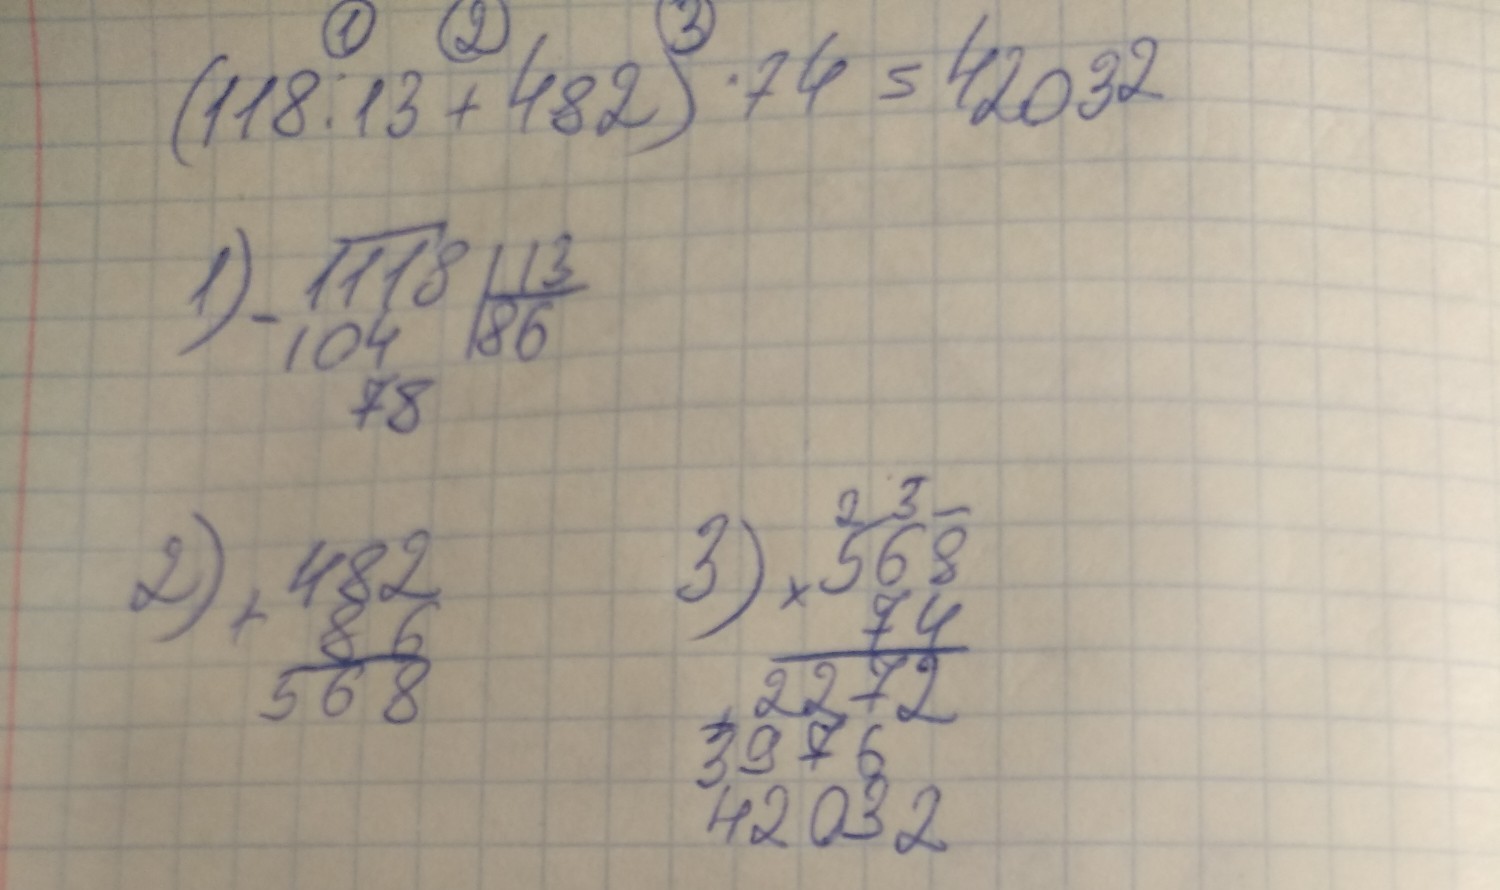 ① ② ③
(118:13+482)·74=42032
1) - 1118 | 13
104 | 86
78
2) + 482
86
568
2 3
3) × 568
74
2272
3976
42032